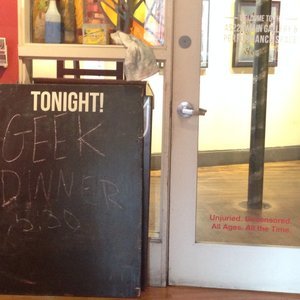 TONIGHT!
GEEK
DINNER
5:30
WELCOME TO
Unjuried. Uncensored.
All Ages. All the Time.